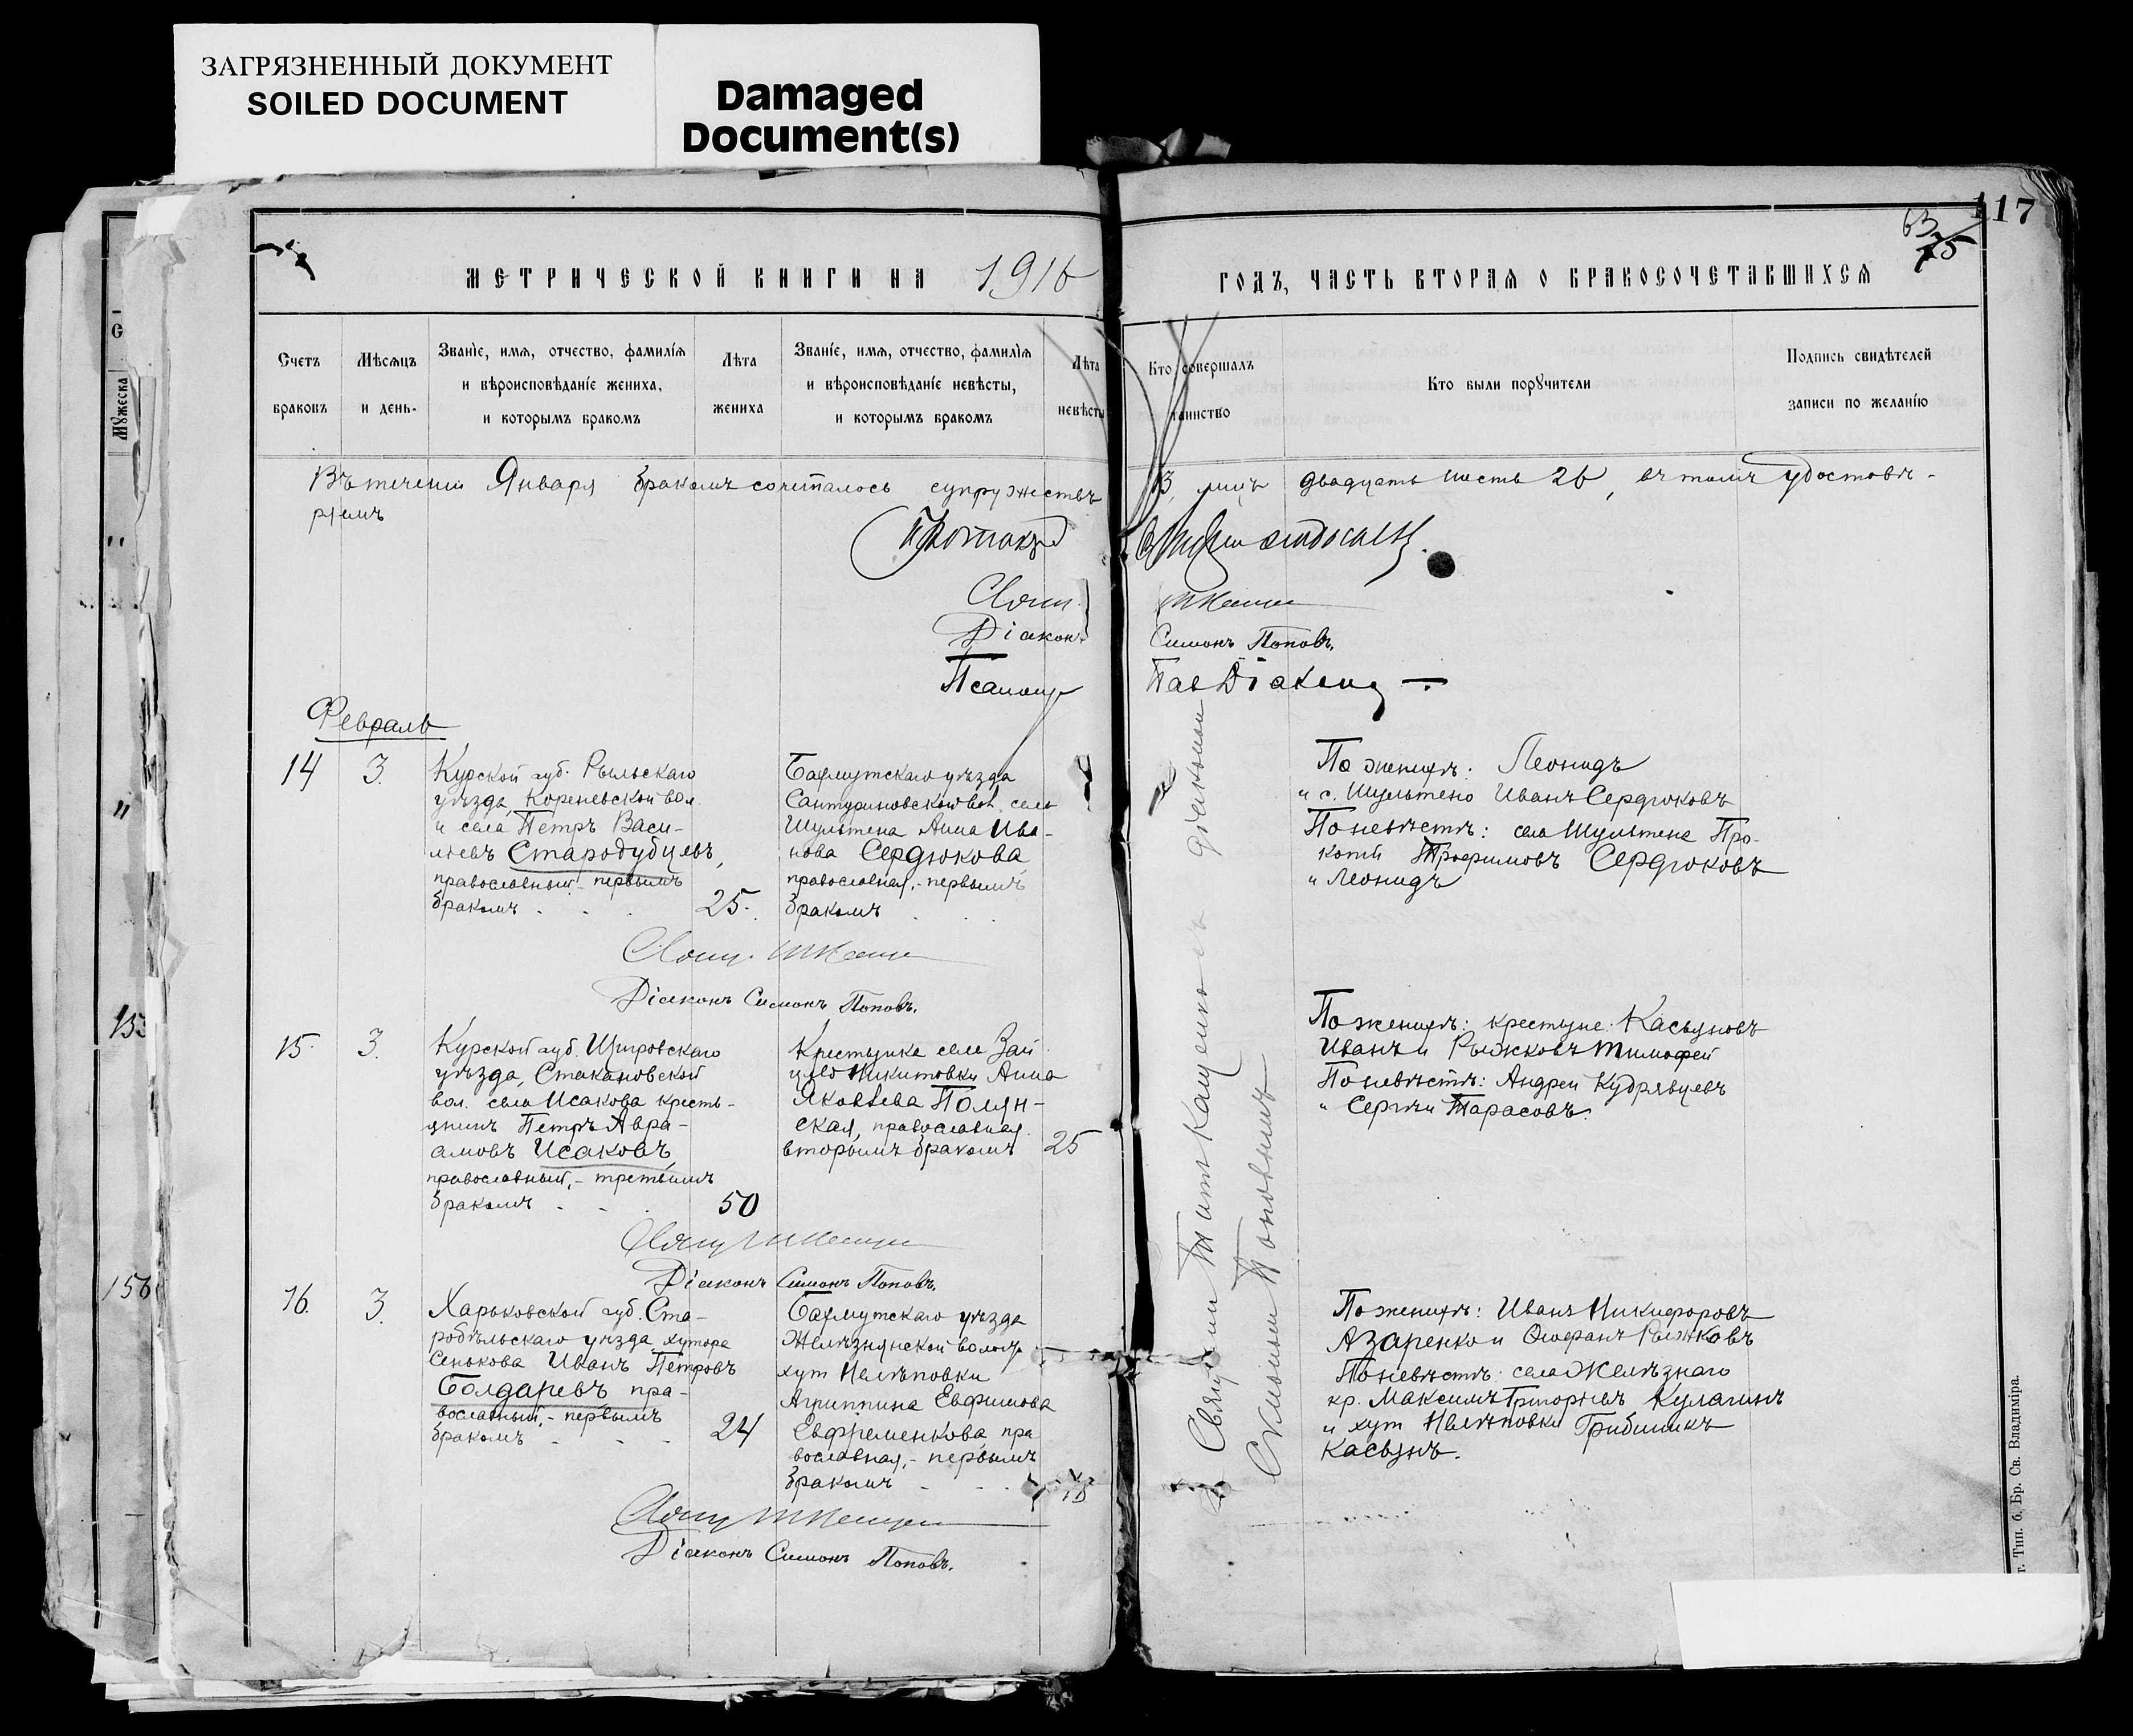 ЗАГРЯЗНЕННЫЙ ДОКУМЕНТ
SOILED DOCUMENT
Damaged
Document(s)
117
63
75
МЕТРИЧЕСКОЙ КНИГИ НА 1916
ГОДЪ, ЧАСТЬ ВТОРАЯ О БРАКОСОЧЕТАВШИХСЯ
Счетъ браковъ
Мѣсяцъ и день.
Званіе, имя, отчество, фамилія и вѣроисповѣданіе жениха, и которымъ бракомъ
Лѣта жениха
Званіе, имя, отчество, фамилія и вѣроисповѣданіе невѣсты, и которымъ бракомъ
Лѣта невѣсты
Кто совершалъ таинство
Кто были поручители
Подпись свидѣтелей записи по желанію
Въ теченіи Января бракомъ сочеталось супружествъ
двадцать шесть 26, въ томъ удостовѣ-
ряемъ
Діаконъ
Симонъ Поповъ.
Февраль
14
3.
Курской губ. Рыльскаго
уѣзда, Кореневской вол.
и села Петръ Васи-
льевъ Стародубцевъ,
православный,- первымъ
бракомъ
25.
Бахмутскаго уѣзда
Сантуриновской вол. села
Шультена Анна Ива-
нова Сердюкова
православная,- первымъ
бракомъ
По женихѣ: Леонидъ
и с. Шультено Иванъ Сердюковъ
По невѣстѣ: села Шультена Про-
копій Трофимовъ Сердюковъ
и Леонидъ
Діаконъ Симонъ Поповъ.
15.
3.
Курской губ. Щигровскаго
уѣзда, Стакановской
вол. села Исакова кресть-
янинъ Петръ Авра-
амовъ Исаковъ,
православный,- третьимъ
бракомъ
50
Крестьянка села Зай
цево Никитовки Анна
Яковлева Полян-
ская, православная
вторымъ бракомъ
25
По женихѣ: крестьяне: Касьяновъ
Иванъ и Рыжковъ Тимофей
По невѣстѣ: Андрей Кудрявцевъ
и Сергѣй Тарасовъ.
Діаконъ Симонъ Поповъ.
16.
3.
Харьковской губ. Ста-
робѣльскаго уѣзда, хутора
Сенькова Иванъ Петровъ
Болдаревъ пра-
вославный,- первымъ
бракомъ
24
Бахмутскаго уѣзда
Желѣзнянской волости
хут Нелѣповки
Агриппина Евфимова
Евфременкова, пра
вославная,- первымъ
бракомъ
По женихѣ: Иванъ Никифоровъ
Азаренко и Рыжковъ
По невѣстѣ: села Желѣзнаго
кр. Максимъ Григорьевъ Кулагинъ
и хут Нелѣповки Грибиникъ
Касьянъ.
Діаконъ Симонъ Поповъ.
Священ Тит Кащенко съ діакономъ
Симономъ Поповымъ
г. Тип. б. Бр. Св. Владиміра.
Мужеска
153
156